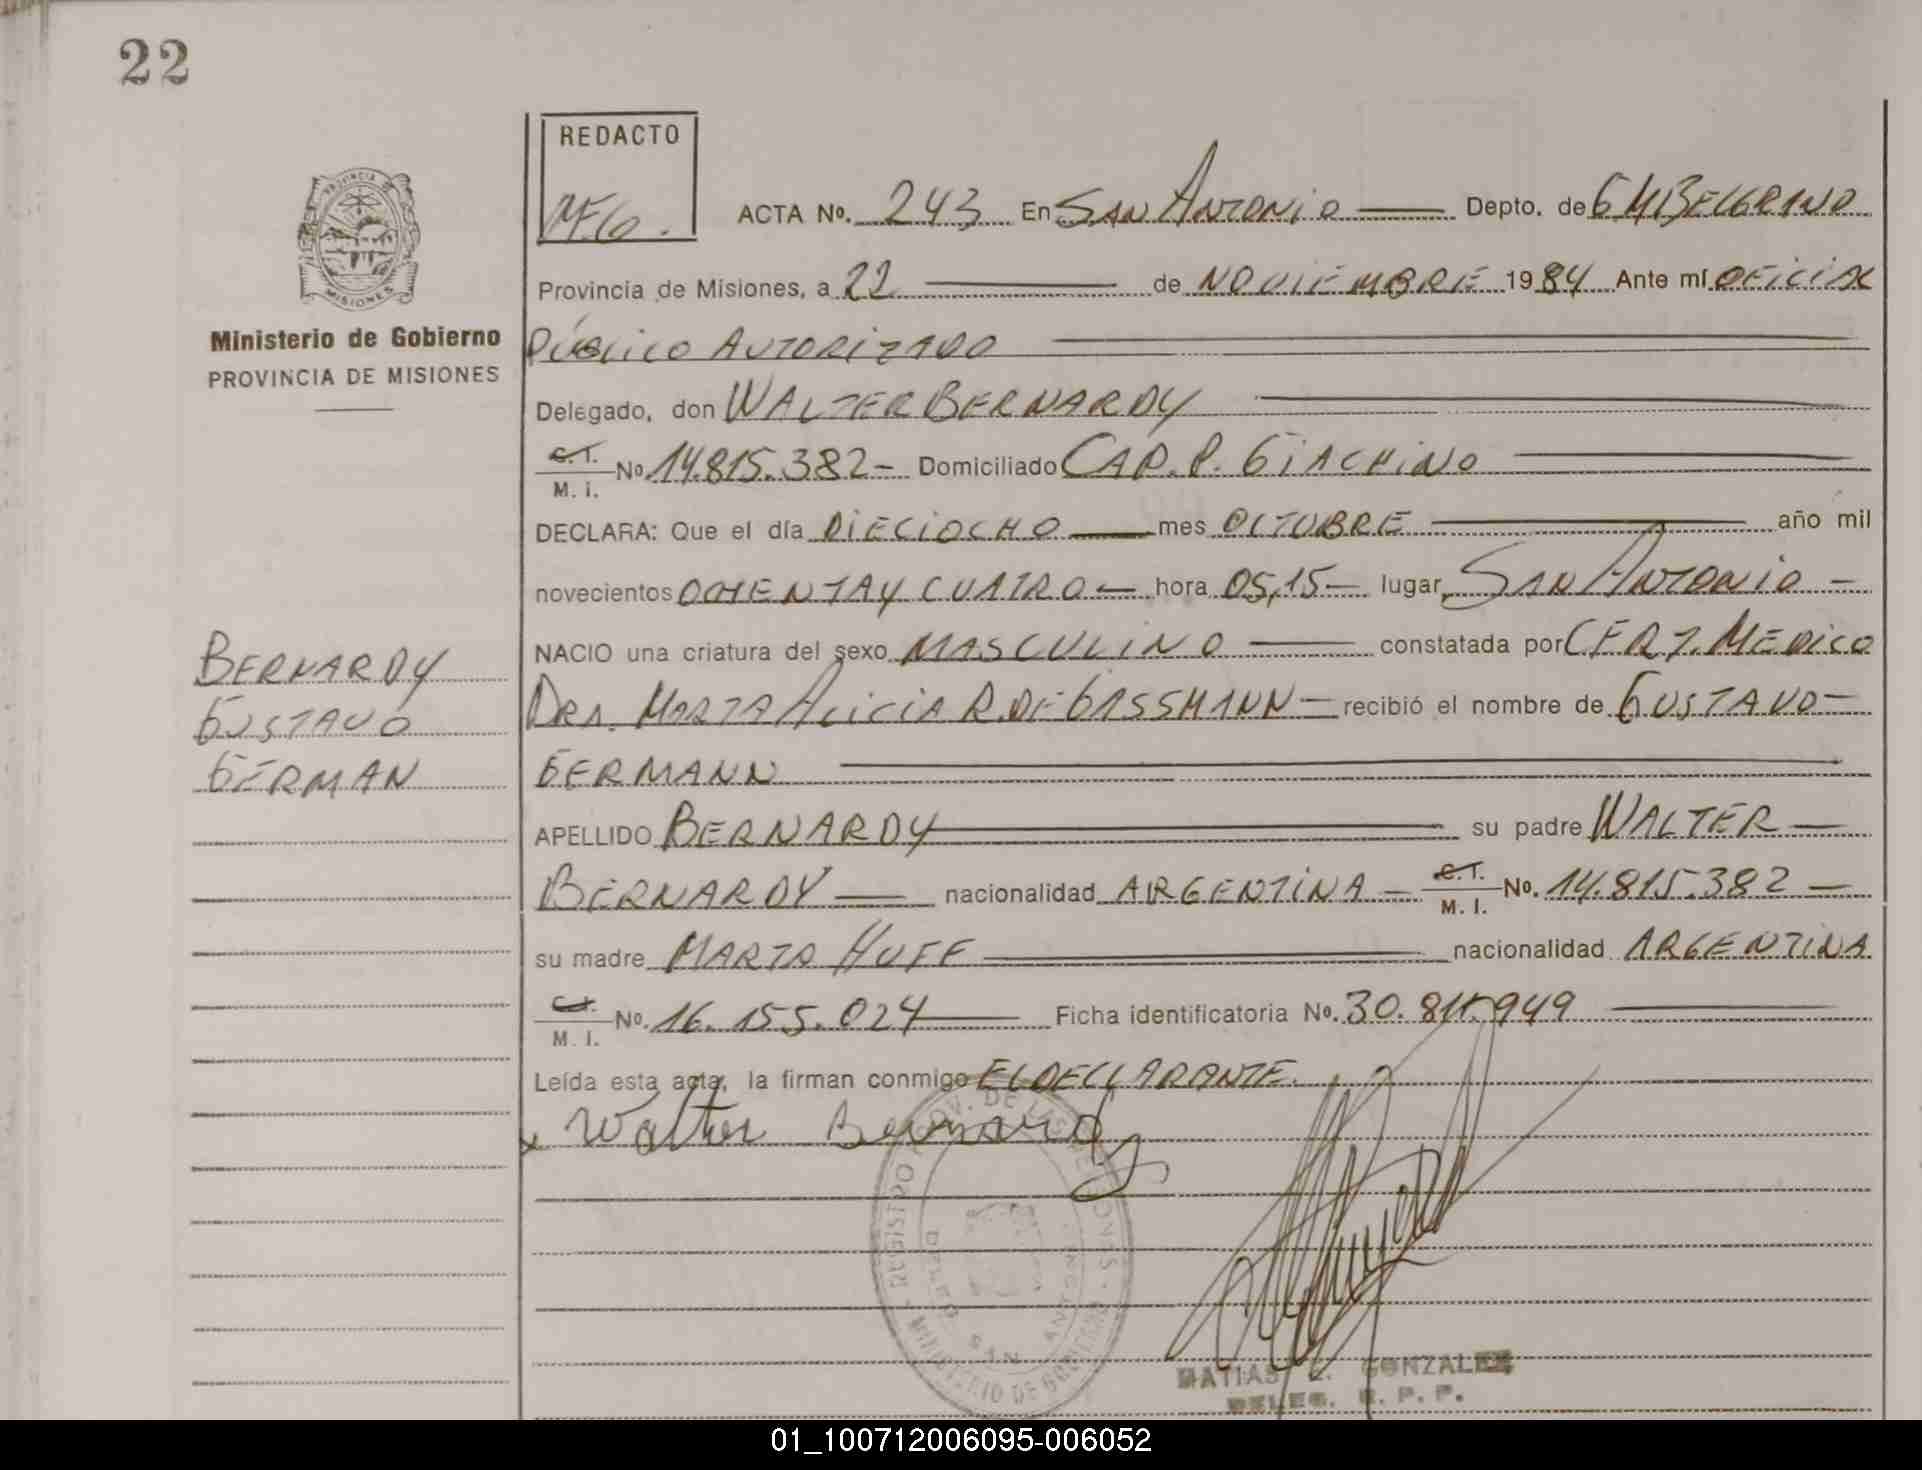 22
REDACTO
M.G.
PROVINCIA DE
MISIONES
Ministerio de Gobierno
PROVINCIA DE MISIONES
ACTA No. 243 En SAN ANTONIO Depto. de G.M.BELGRANO
Provincia de Misiones, a 22 de NOVIEMBRE 1984 Ante mí OFICIAL
PÚBLICO AUTORIZADO
Delegado, don WALTER BERNARDY
C.I. M. I. No. 14.815.382- Domiciliado CAP. P. GIACHINO
DECLARA: Que el día DIECIOCHO mes OCTUBRE año mil
novecientos OCHENTA Y CUATRO hora 05,15 lugar SAN ANTONIO
NACIO una criatura del sexo MASCULINO constatada por CERT. MEDICO
DRA. MARTA ALICIA R. DE GASSMANN recibió el nombre de GUSTAVO
GERMANN
BERNARDY
GUSTAVO
GERMAN
APELLIDO BERNARDY su padre WALTER
BERNARDY nacionalidad ARGENTINA C.I. M. I. No. 14.815.382
su madre MARTA HUFF nacionalidad ARGENTINA
C.I. M. I. No. 16.155.024 Ficha identificatoria No. 30.811.949
Leída esta acta, la firman conmigo EL DECLARANTE.
x Walter Bernardy
REGISTRO PROV. DE LAS PERSONAS
MINISTERIO DE GOBIERNO
DELEG. SAN ANTONIO
MATIAS GONZALEZ
DELEG. R. P. P.
01_100712006095-006052